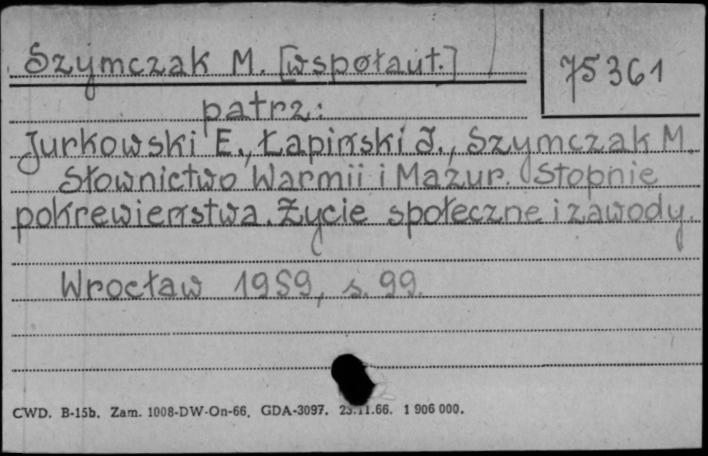 Szymczak M. [współaut.]
75361
patrz:
Jurkowski E., Łapiński J., Szymczak M.
Słownictwo Warmii i Mazur. Stopnie
pokrewieństwa. Życie społeczne i zawody.
Wrocław 1959, s. 99.
CWD. B-15b. Zam. 1008-DW-On-66. GDA-3097. 23.11.66. 1 906 000.